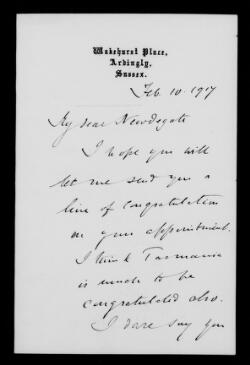 Wakehurst Place,
Ardingly,
Sussex.
Feb. 10. 1917
My dear Newdegate
I hope you will
let me send you a
line of congratulation
on your appointment.
I think Tasmania
is much to be
congratulated also.
I dare say you